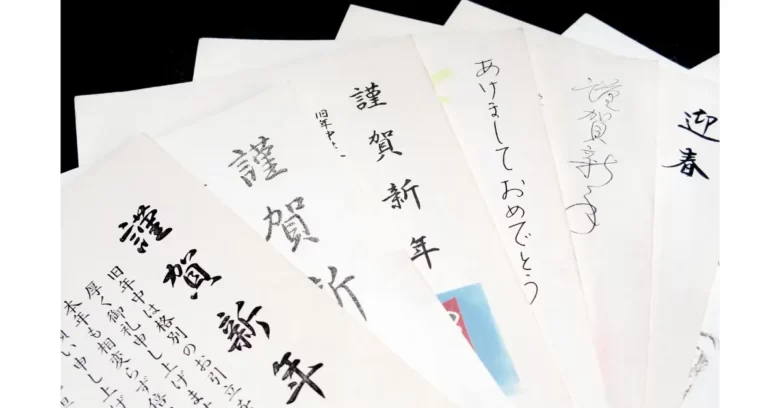 謹賀新年
旧年中は格別のお引立を
厚く御礼申し上げま
本年も相変らず倍
い申し上げ
謹賀新
謹賀新年
旧年中
あけましておめでとう
謹賀新年
迎春